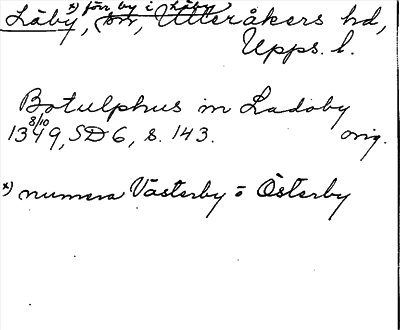 x) förr by i Läby
Läby, sn, Ulleråkers hd,
Upps. l.
Botulphus in Ladoby
8/10
1349, SD 6, s. 143. orig.
x) numera Västerby o Österby